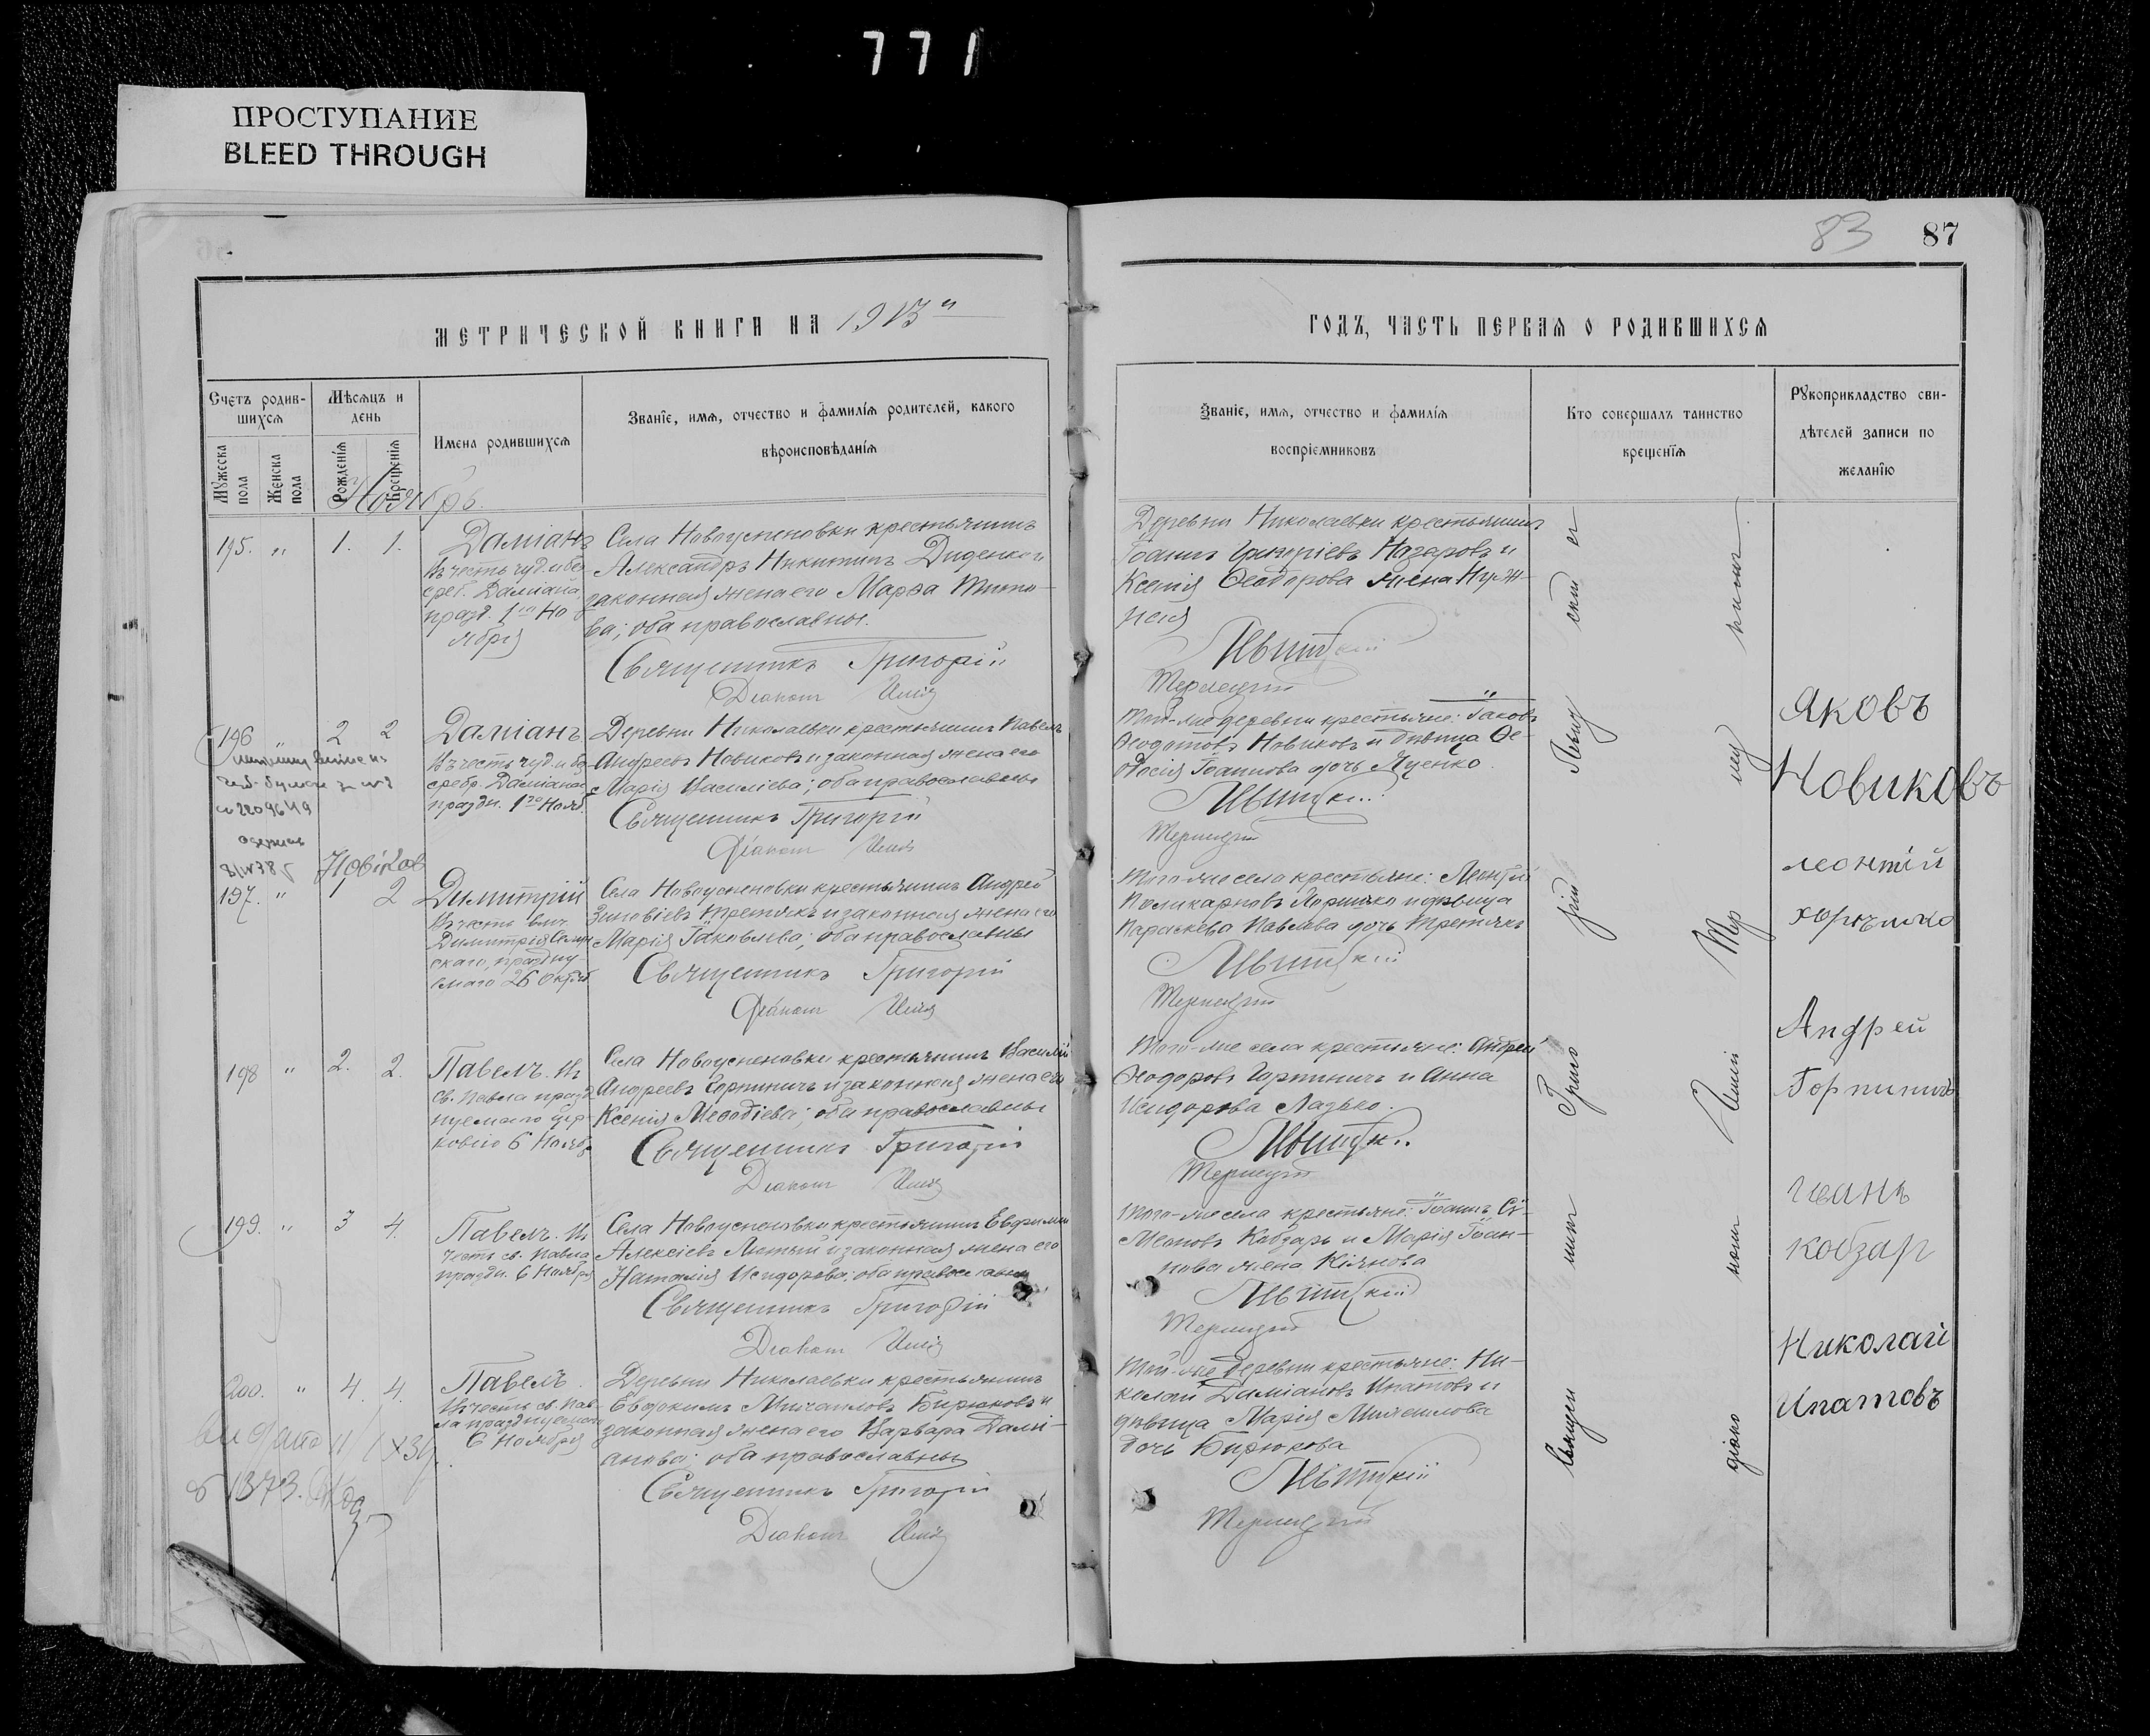 771
ПРОСТУПАНИЕ
BLEED THROUGH
83 87
МЕТРИЧЕСКОЙ КНИГИ НА 1913й
Счетъ родившихся
Мужеска пола
Женска пола
Мѣсяцъ и день
Рожденія
Крещенія
Имена родившихся
Званіе, имя, отчество и фамилія родителей, какого
вѣроисповѣданія
ГОДЪ, ЧАСТЬ ПЕРВАЯ О РОДИВШИХСЯ
Званіе, имя, отчество и фамилія
воспріемниковъ
Кто совершалъ таинство
крещенія
Рукоприкладство сви-
дѣтелей записи по
желанію
Ноябрь.
195. " 1. 1.
Даміанъ
Въ честь чуд. и без
среб. Даміана
празд. 1го Но
ября
Села Новоуспеновки крестьянинъ
Александръ Никитинъ Диденко и
законная жена его Марѳа Тито-
ва; оба православные.
Священникъ Григорій
Діаконъ
Деревни Николаевки крестьянинъ
Іоаннъ Григоріевъ Назаровъ и
Ксенія Ѳеодорова жена Нуж-
ная
196 " 2 2
Даміанъ
Въ честь чуд. и без
сребр. Даміана
праздн. 1го Нояб.
Деревни Николаевки крестьянинъ Павелъ
Андреевъ Новиковъ и законная жена его
Марія Василіева; оба православны
Священникъ Григорій
Діаконъ
Той-же деревни крестьяне: Іаковъ
Ѳеодотовъ Новиковъ и дѣвица Ѳе-
одосія Іоаннова дочь Луценко.
Яковъ
Новиковъ
Новіков
197. " 1 2
Димитрій
Въ честь вмч.
Димитрія Селун
скаго, праздну-
емаго 26 Октяб
Села Новоуспеновки крестьянинъ Андрей
Зиновіевъ Третякъ и законная жена его
Марія Іаковлева; оба православны
Священникъ Григорій
Діаконъ
Того-же села крестьяне: Леонтій
Поликарповъ и дѣвица
Параскева Павлова дочь Третякъ
леонтій
198 " 2. 2.
Павелъ. Въ
св. Павла празд
нуемаго цер-
ковію 6 Нояб.
Села Новоуспеновки крестьянинъ Василій
Андреевъ Горпиничъ и законная жена его
Ксенія Меѳодіева; оба православны
Священникъ Григорій
Діаконъ
Того-же села крестьяне: Андрей
Ѳеодоровъ Горпиничъ и Анна
Исидорова Ладько.
Андрей
Горпиничъ
199. " 3 4.
Павелъ. Въ
честь св. Павла
праздн. 6 Ноября
Села Новоуспеновки крестьянинъ Евфимій
Алексіевъ Лютый и законная жена его
Наталія Исидорова; оба православны
Священникъ Григорій
Діаконъ
Того-же села крестьяне: Іоаннъ Сѵ-
меоновъ Кобзарь и Марія Іоан-
нова жена Кіянова
Іванъ
кобзар
200. " 4. 4.
Павелъ
Въ честь св. Пав-
ла празднуемаго
6 Ноября
Деревни Николаевки крестьянинъ
Евдокимъ Михаиловъ Бирюковъ и
законная жена его Варвара Дамі-
анова; оба православны
Священникъ Григорій
Діаконъ
Той-же деревни крестьяне: Ни-
колай Даміановъ Ипатовъ и
дѣвица Марія Михаилова
дочь Бирюкова
Николай
Ипатовъ